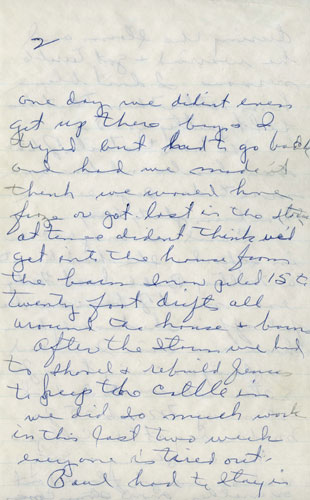 2
one day we didint even
get up there boys I
tryed but had to go back
and had we made it
think we would have
froze or got lost in the storm
at times dident think we'd
get into the house from
the barn snow piled 15 to
twenty foot drifts all
around the house & barn
After the storm we had
to shovel & rebuild fences
to keep the cattle in
we did so much work
in this last two week
everyone is tired out.
Paul had to stay in